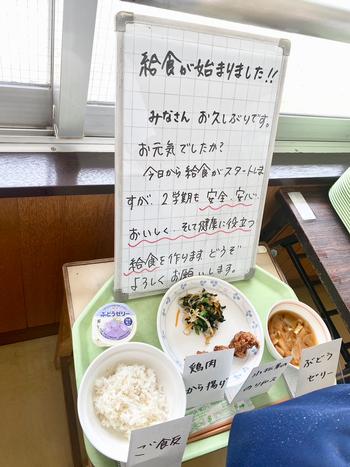 給食が始まりました!!
みなさん お久しぶりです。
お元気でしたか?
今日から給食がスタートしま
すが、2学期も 安全、安心、
おいしく、そして健康に役立つ
給食を作ります どうぞ
よろしく お願いします。
ぶどうゼリー
ご飯
鶏肉
から揚げ
小松菜の
のりあえ
ぶどう
ゼリー